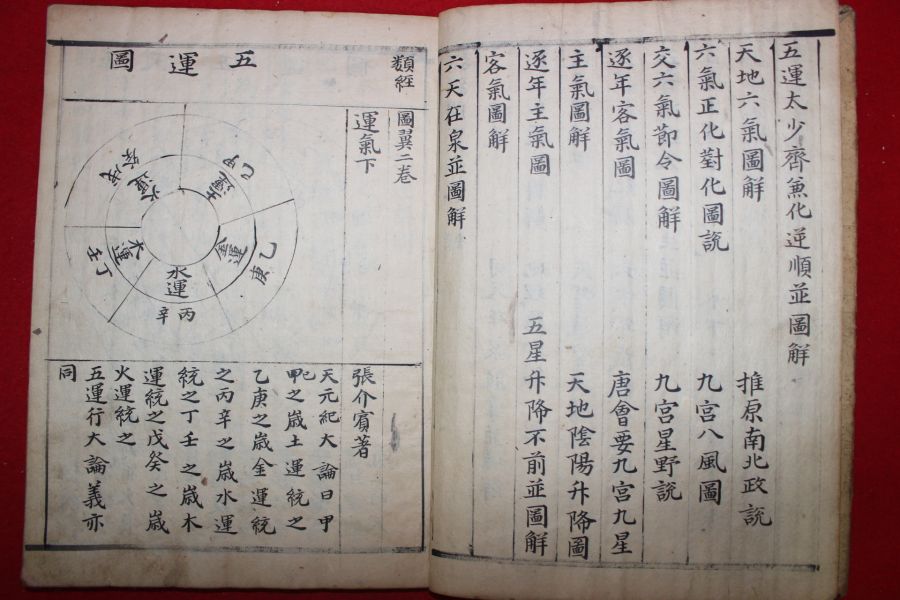 五運太少齊兼化逆順並圖解
天地六氣圖解 推原南北政說
六氣正化對化圖說 九宮八風圖
交六氣節令圖解 九宮星野說
逐年客氣圖 唐會要九宮九星
主氣圖解 天地陰陽升降圖
逐年主氣圖 五星升降不前並圖解
客氣圖解
六天在泉並圖解
類經
圖翼二卷
運氣下
五運圖
甲己
土運
乙庚
金運
丙辛
水運
丁壬
木運
戊癸
火運
張介賓著
天元紀大論曰甲
甲己之歲土運統之
乙庚之歲金運統
之丙辛之歲水運
統之丁壬之歲木
運統之戊癸之歲
火運統之
五運行大論義亦
同